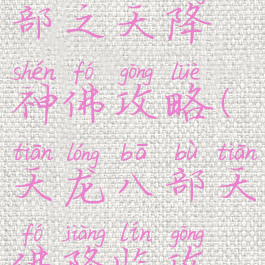 部之天降
shén fó gōng lüè
神佛攻略(
tiān lóng bā bù tiān
天龙八部天
fó jiàng lín gōng
佛降临攻